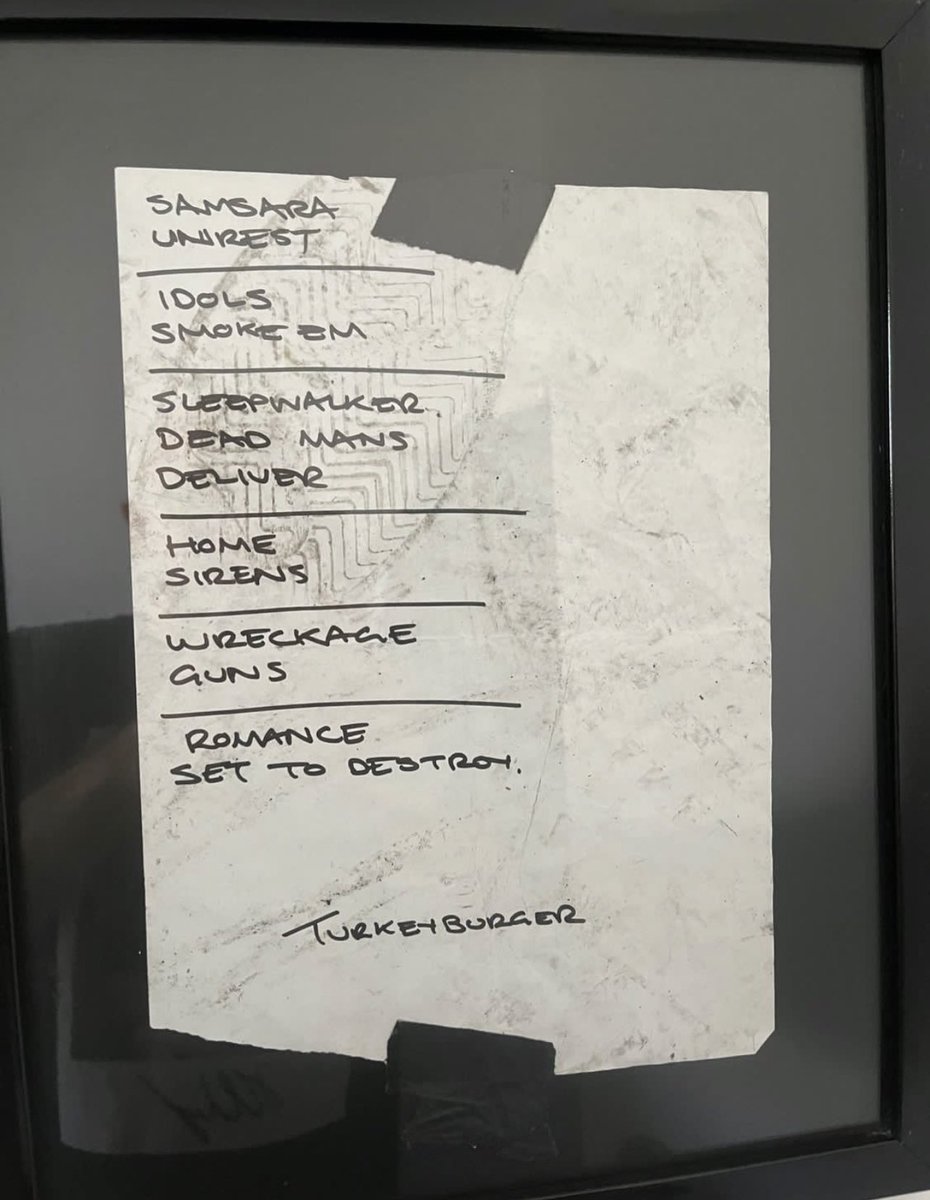 SAMSARA
UNREST
IDOLS
SMOKE EM
SLEEPWALKER
DEAD MANS
DELIVER
HOME
SIRENS
WRECKAGE
GUNS
ROMANCE
SET TO DESTROY.
TURKEYBURGER